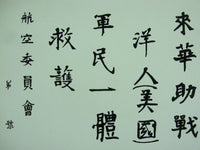 來華助戰
洋人(美國)
軍民一體
救護
航空委員會
第 號